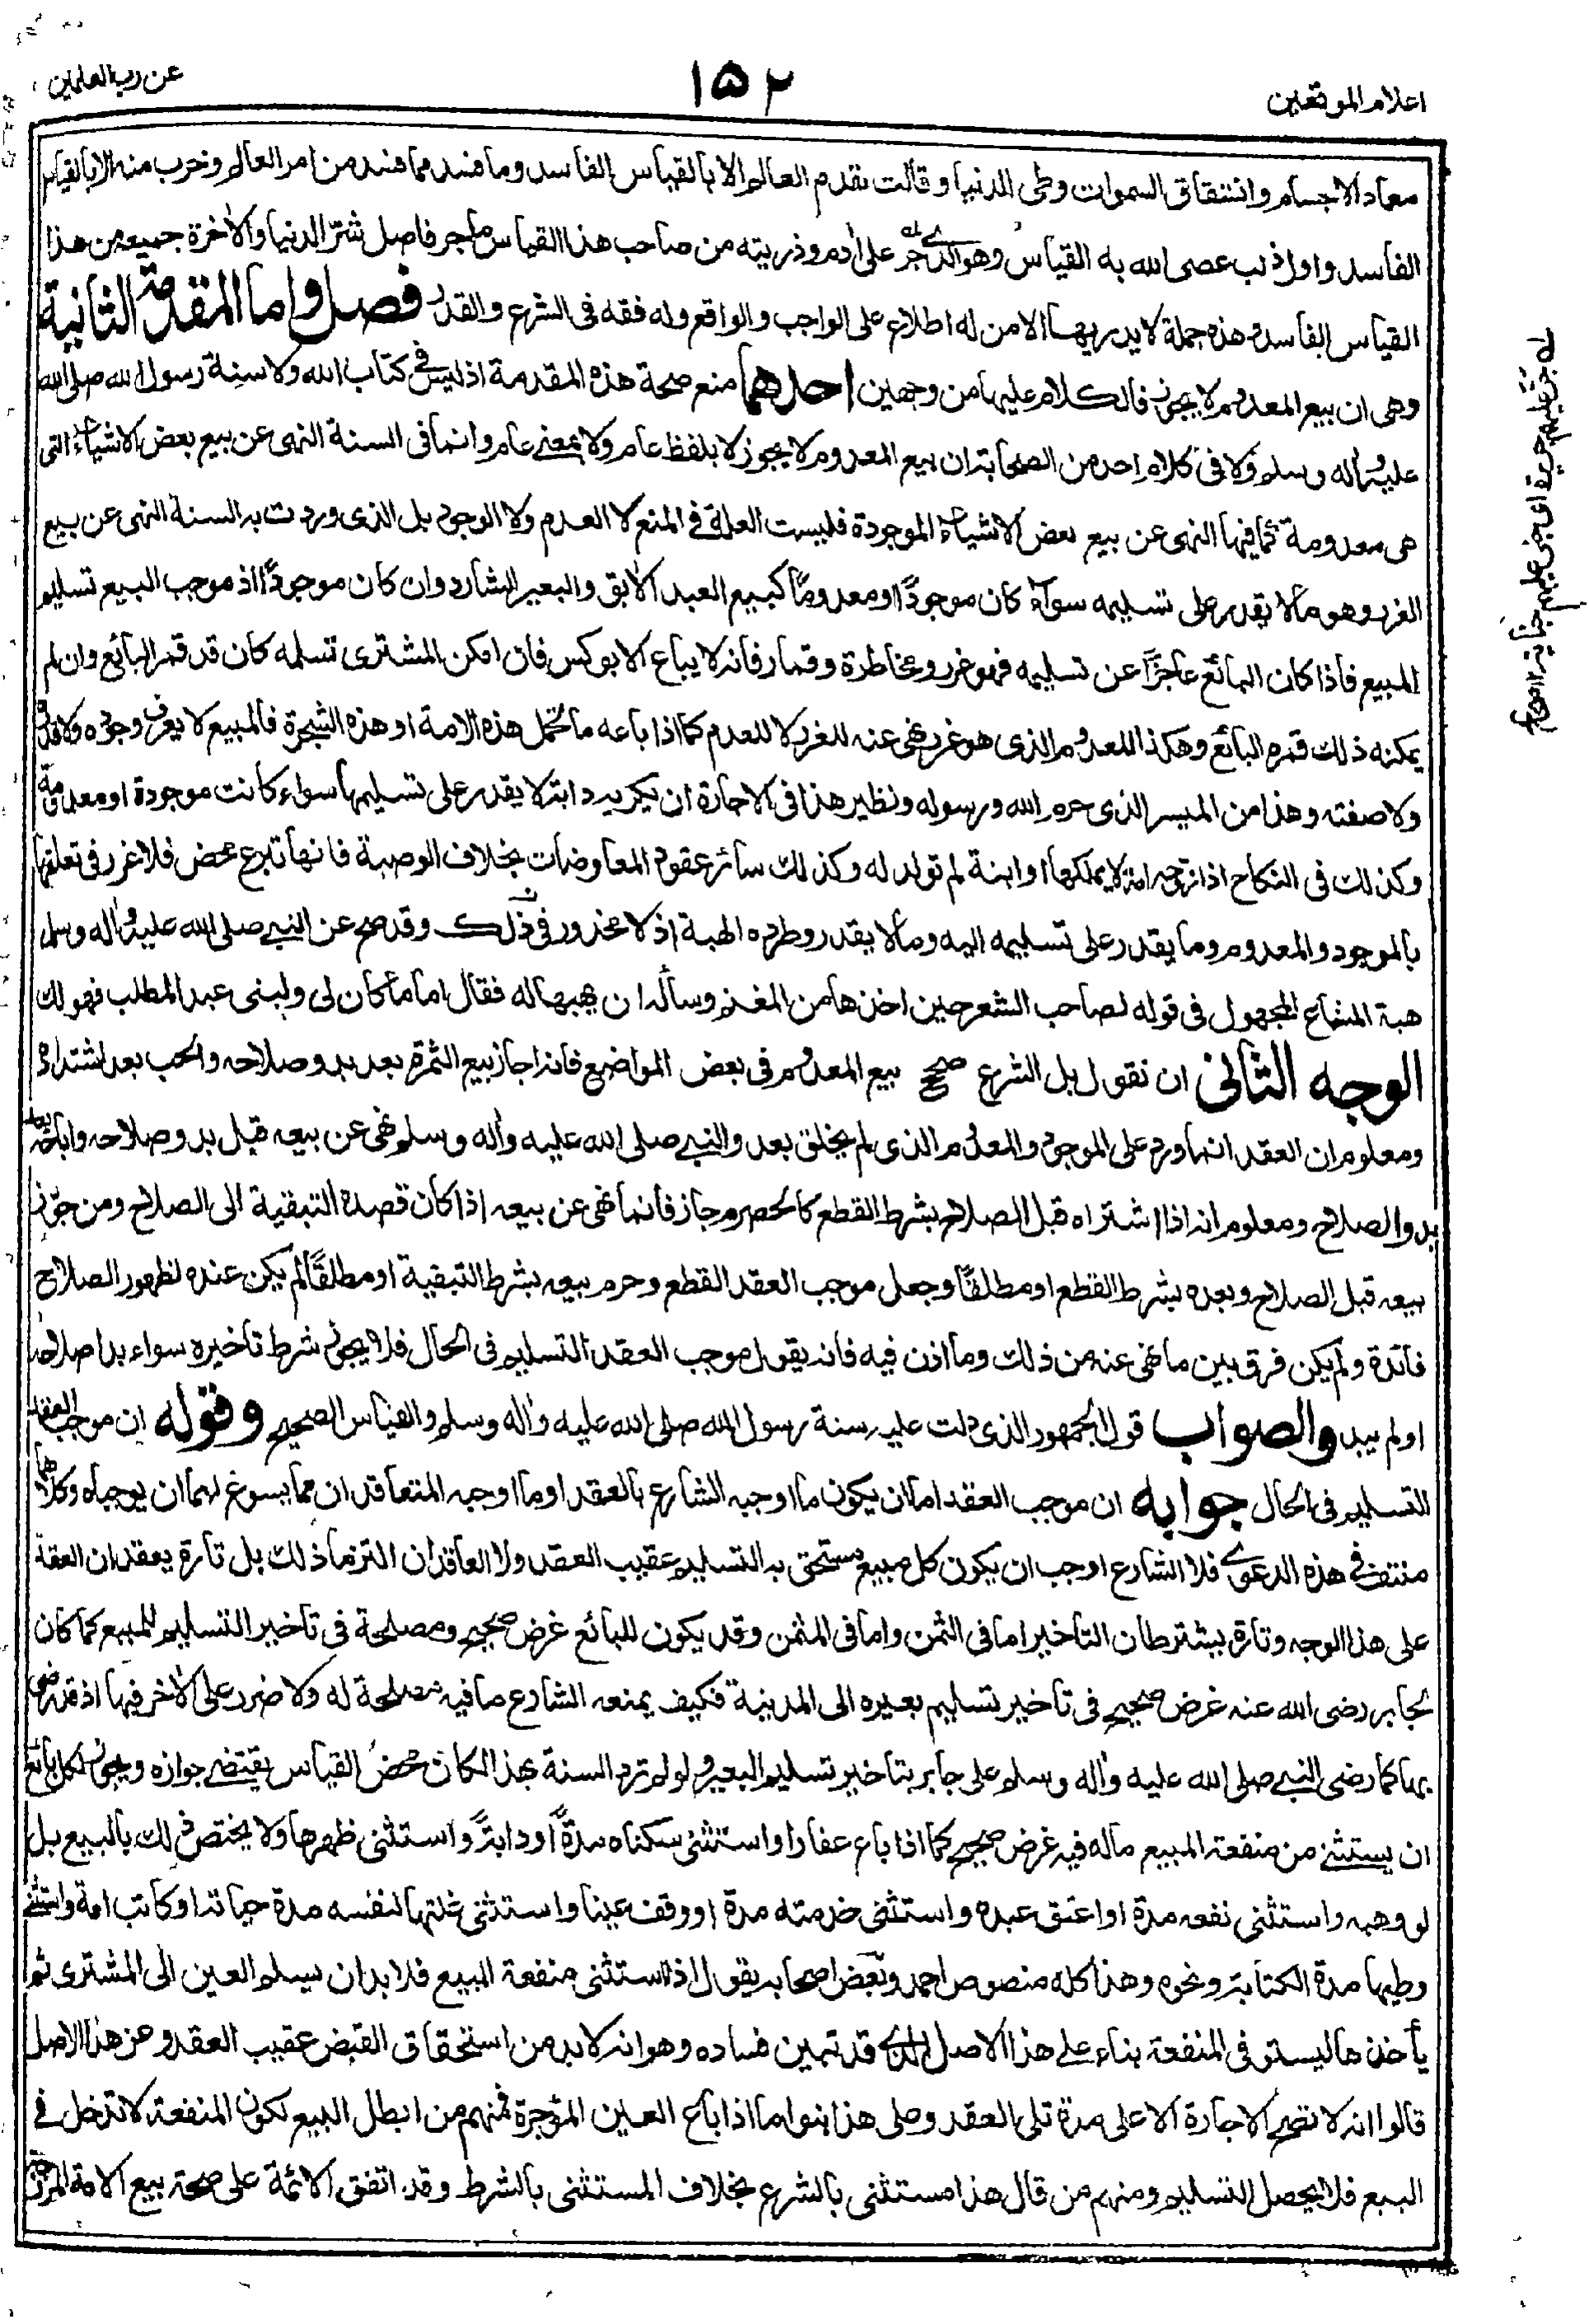 اعلام الموقعين
١٥٢
عن رب العلمين
معاد الاجسام وانشقاق السموات وطى الدنيا وقالت بقدم العالم الا بالقياس الفاسد وما فسد مما فسد من امر العالم وخرب منه الا بالقياس
الفاسد واول ذنب عصى الله به القياس وهو الذى جر على ادم وذريته من صاحب هذا القياس ما جر فاصل شر الدنيا والاخرة جميعه من هذا
القياس الفاسد وهذه جملة لا يدريها الا من له اطلاع على الواجب والواقع وله فقه فى الشرع والقدر فصل واما المقدمة الثانية
وهى ان بيع المعدوم لا يجوز فالكلام عليها من وجهين احدهما منع صحة هذه المقدمة اذ ليس فى كتاب الله ولا سنة رسول الله صلى الله
عليه واله وسلم ولا فى كلام احد من الصحابة ان بيع المعدوم لا يجوز لا بلفظ عام ولا بمعنى عام وانما فى السنة النهى عن بيع بعض الاشياء التى
هى معدومة كما فيها النهى عن بيع بعض الاشياء الموجودة فليست العلة فى المنع لا العدم ولا الوجود بل الذى وردت به السنة النهى عن بيع
الغرر وهو ما لا يقدر على تسليمه سواء كان موجودًا او معدومًا كبيع العبد الابق والبعير الشارد وان كان موجودًا اذ موجب البيع تسليم
المبيع فاذا كان البائع عاجزًا عن تسليمه فهو غرر ومخاطرة وقمار فانه لا يباع الا بوكس فان امكن المشترى تسلمه كان قد قمر البائع وان لم
يمكنه ذلك قمره البائع وهكذا المعدوم الذى هو غرر نهى عنه للغرر لا للعدم كما اذا باعه ما تحمل هذه الامة او هذه الشجرة فالمبيع لا يعرف وجوده ولا قدره
ولا صفته وهذا من الميسر الذى حرم الله ورسوله ونظير هذا فى الاجارة ان يكريه دابة لا يقدر على تسليمها سواء كانت موجودة او معدومة
وكذلك فى النكاح اذا زوجه امة لا يملكها او ابنة لم تولد له وكذلك سائر عقود المعاوضات بخلاف الوصية فانها تبرع محض فلا غرر فى تعلقها
بالموجود والمعدوم وما يقدر على تسليمه اليه وما لا يقدر وطرده الهبة اذ لا محذور فى ذلك وقد صح عن النبى صلى الله عليه واله وسلم
هبة المشاع المجهول فى قوله لصاحب الشعر حين اخذها من المغنم وسأله ان يهبها له فقال اما ما كان لى ولبنى عبد المطلب فهو لك
الوجه الثانى ان نقول بل الشرع صحح بيع المعدوم فى بعض المواضع فانه اجاز بيع الثمرة بعد بدو صلاحه والحب بعد اشتداده
ومعلوم ان العقد انما ورد على الموجود والمعدوم الذى لم يخلق بعد والنبى صلى الله عليه واله وسلم نهى عن بيعه قبل بدو صلاحه واباحه بعد
بدو الصلاح ومعلوم انه اذا اشتراه قبل الصلاح بشرط القطع كالحصرم جاز فانما نهى عن بيعه اذا كان قصده التبقية الى الصلاح ومن جوز
بيعه قبل الصلاح وبعده بشرط القطع او مطلقًا وجعل موجب العقد القطع وحرم بيعه بشرط التبقية او مطلقًا لم يكن عنده لظهور الصلاح
فائدة ولم يكن فرق بين ما نهى عنه من ذلك وما اذن فيه فانه يقول موجب العقد التسليم فى الحال فلا يجوز شرط تأخيره سواء بدا صلاحه
او لم يبد والصواب قول الجمهور الذى دلت عليه سنة رسول الله صلى الله عليه واله وسلم والقياس الصحيح وقوله ان موجب العقد
التسليم فى الحال جوابه ان موجب العقد اما ان يكون ما اوجبه الشارع بالعقد او ما اوجبه المتعاقدان مما يسوغ لهما ان يوجباه وكلاهما
منتف فى هذه الدعوى فلا الشارع اوجب ان يكون كل مبيع مستحق به التسليم عقيب العقد ولا العاقدان التزما ذلك بل تارة يعقدان العقد
على هذا الوجه وتارة يشترطان التاخير اما فى الثمن واما فى المثمن وقد يكون للبائع غرض صحيح ومصلحة فى تاخير التسليم للمبيع كما كان
لجابر رضى الله عنه غرض صحيح فى تاخير تسليم بعيره الى المدينة فكيف يمنعه الشارع ما فيه مصلحة له ولا ضرر على الاخر فيها اذ قد رضى
بها كما رضى النبى صلى الله عليه واله وسلم على جابر بتاخير تسليم البعير ولو لم ترد السنة بهذا لكان محض القياس يقتضى جوازه ويجوز لكل بائع
ان يستثنى من منفعة المبيع ماله فيه غرض صحيح كما اذا باع عقارا واستثنى سكناه مدةً او دابةً واستثنى ظهرها ولا يختص ذلك بالبيع بل
لو وهبه واستثنى نفعه مدة او اعتق عبده واستثنى خدمته مدة او وقف عينا واستثنى غلتها لنفسه مدة حياته او كاتب امة واستثنى
وطيها مدة الكتابة ونحوه وهذا كله منصوص احمد وبعض اصحابه يقول اذا استثنى منفعة المبيع فلا بد ان يسلم العين الى المشترى ثم
يأخذها ليستوفى المنفعة بناء على هذا الاصل الذى قد تبين فساده وهو انه لا بد من استحقاق القبض عقيب العقد وعن هذا الاصل
قالوا انه لا تصح الاجارة الا على مدة تلى العقد وعلى هذا بنوا ما اذا باع العين المؤجرة فمنهم من ابطل البيع لكون المنفعة لا تدخل فى
البيع فلا يحصل التسليم ومنهم من قال هذا مستثنى بالشرع بخلاف المستثنى بالشرط وقد اتفق الائمة على صحة بيع الامة المزوجة